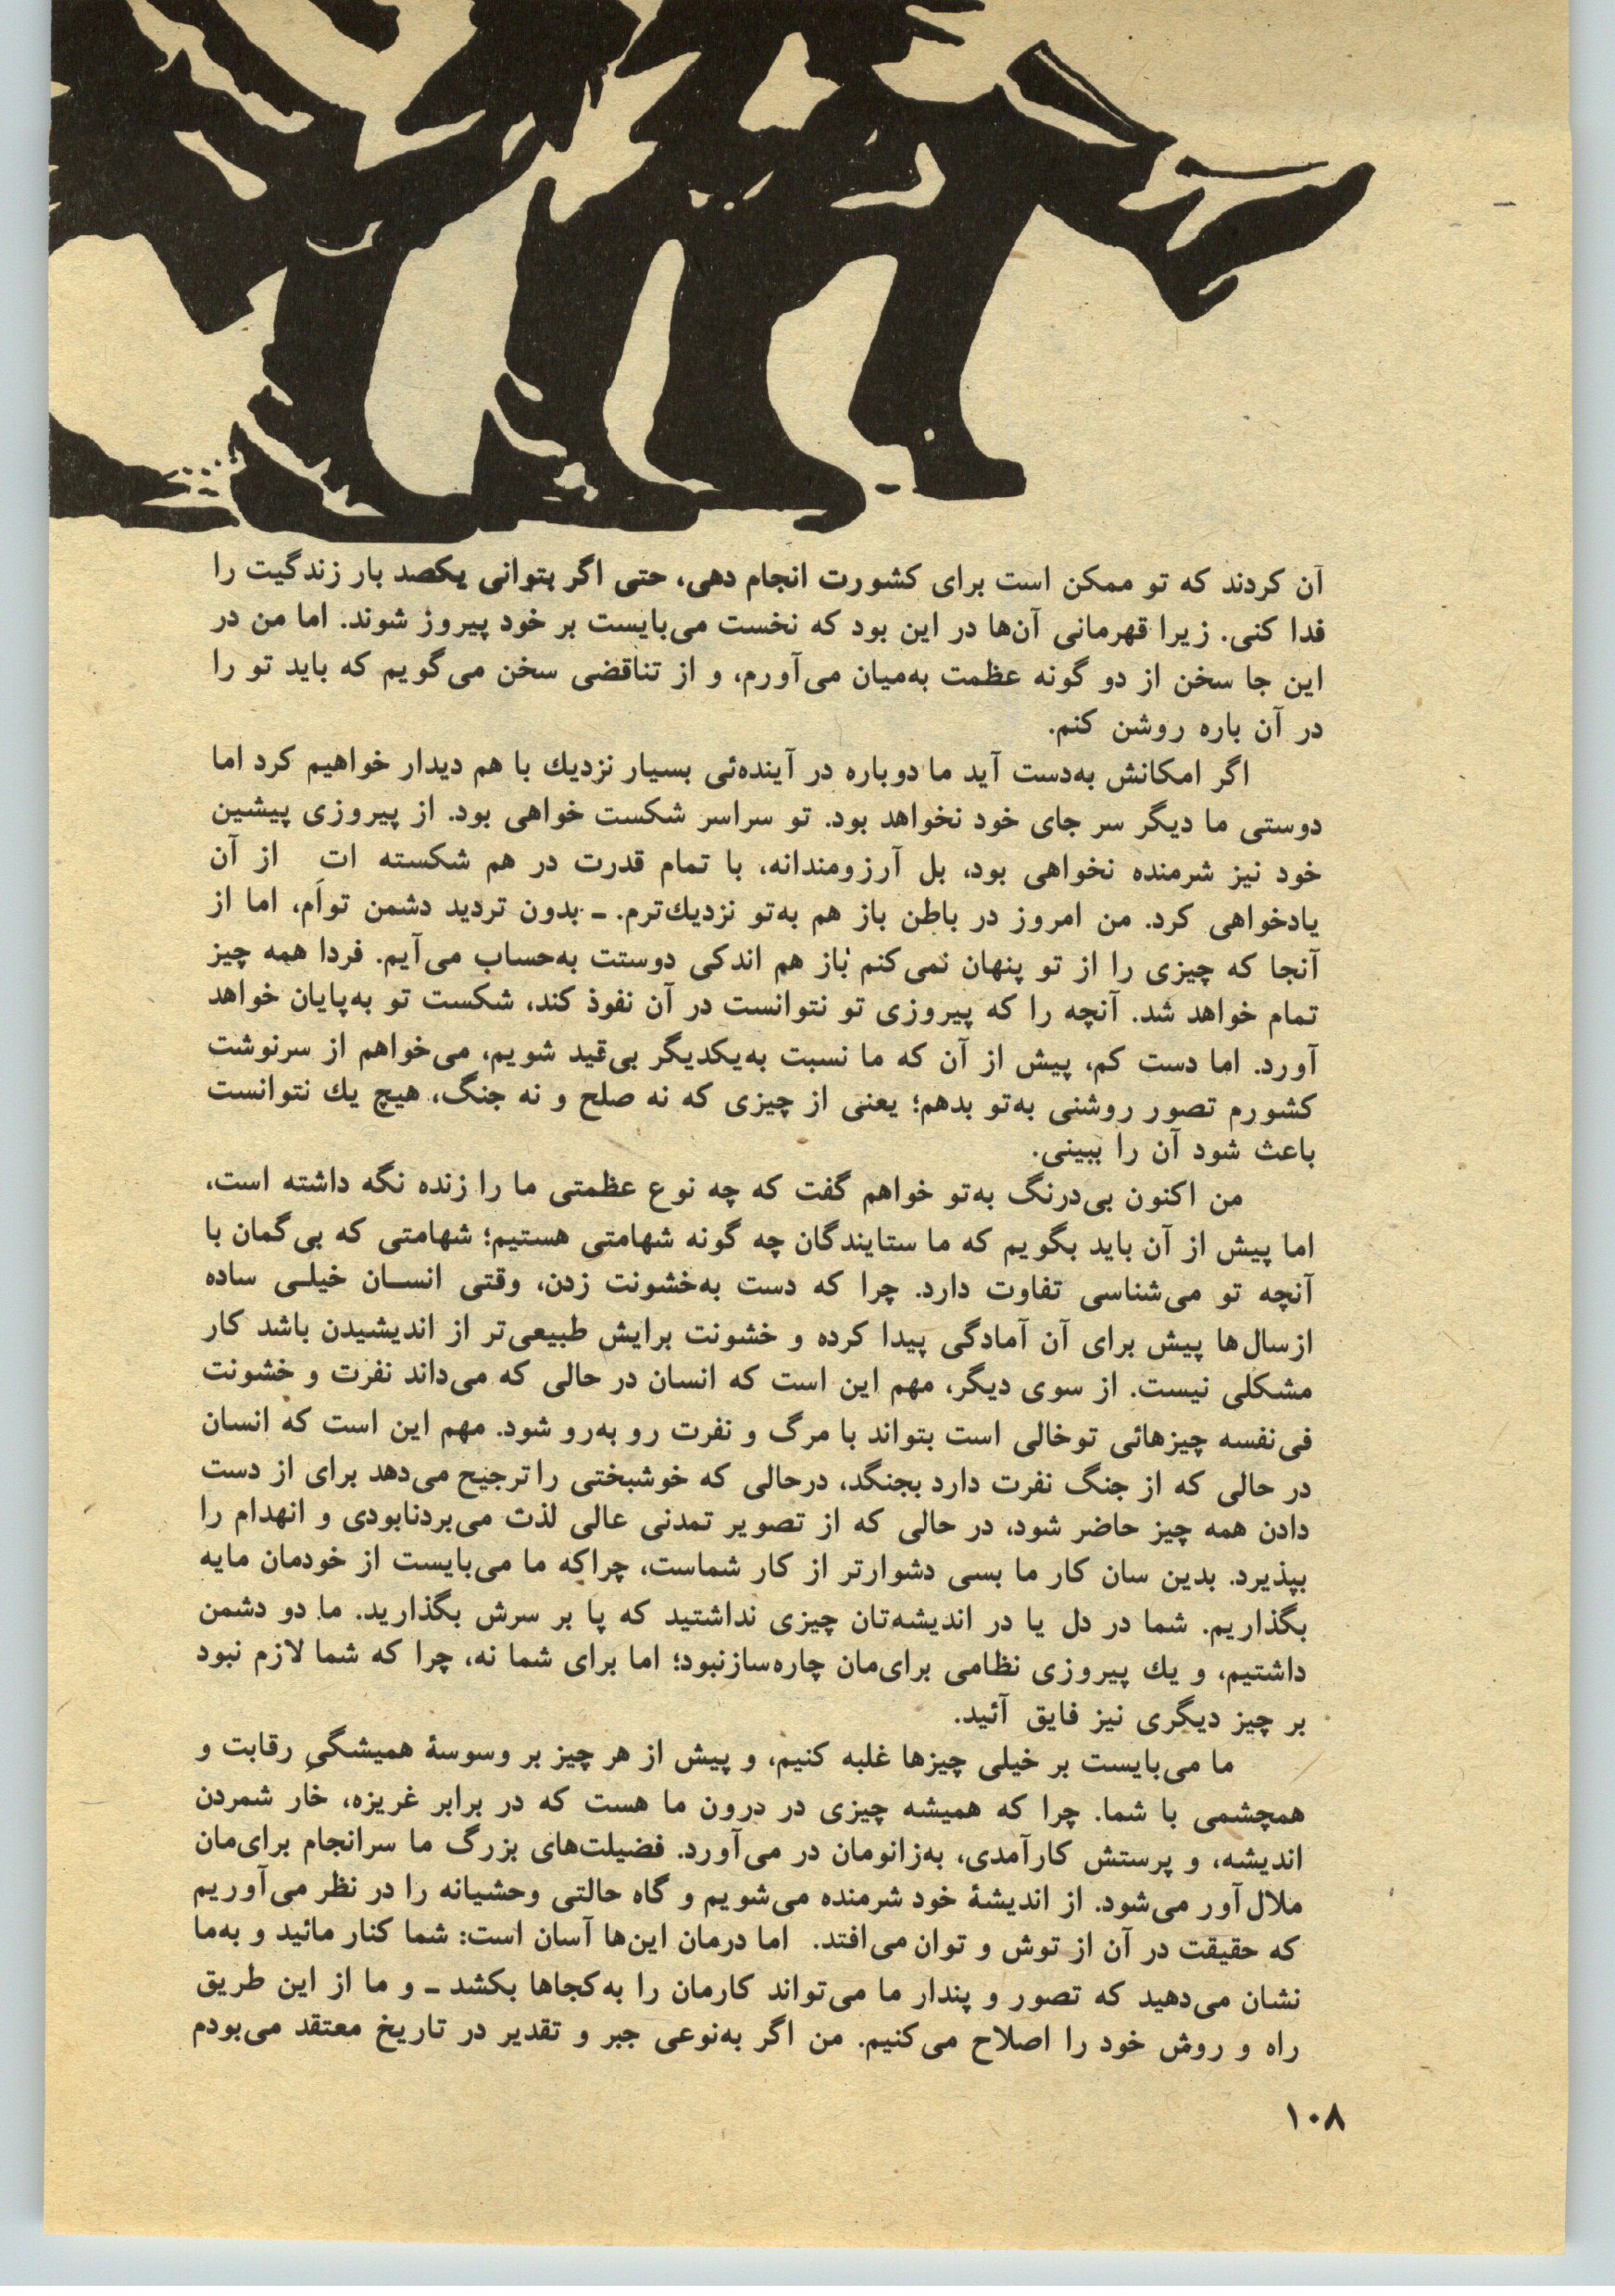 آن کردند که تو ممکن است برای کشورت انجام دهی، حتی اگر بتوانی یکصد بار زندگیت را
فدا کنی. زیرا قهرمانی آن‌ها در این بود که نخست می‌بایست بر خود پیروز شوند. اما من در
این جا سخن از دو گونه عظمت به‌میان می‌آورم، و از تناقضی سخن می‌گویم که باید تو را
در آن باره روشن کنم.
اگر امکانش به‌دست آید ما دوباره در آینده‌ئی بسیار نزدیك با هم دیدار خواهیم کرد اما
دوستی ما دیگر سر جای خود نخواهد بود. تو سراسر شکست خواهی بود. از پیروزی پیشین
خود نیز شرمنده نخواهی بود، بل آرزومندانه، با تمام قدرت در هم شکسته اتِ از آن
یادخواهی کرد. من امروز در باطن باز هم به‌تو نزدیك‌ترم. ـ بدون تردید دشمن توأم، اما از
آنجا که چیزی را از تو پنهان نمی‌کنم باز هم اندکی دوستت به‌حساب می‌آیم. فردا همه چیز
تمام خواهد شد. آنچه را که پیروزی تو نتوانست در آن نفوذ کند، شکست تو به‌پایان خواهد
آورد. اما دست کم، پیش از آن که ما نسبت به‌یکدیگر بی‌قید شویم، می‌خواهم از سرنوشت
کشورم تصور روشنی به‌تو بدهم؛ یعنی از چیزی که نه صلح و نه جنگ، هیچ یك نتوانست
باعث شود آن را ببینی.
من اکنون بی‌درنگ به‌تو خواهم گفت که چه نوع عظمتی ما را زنده نگه داشته است،
اما پیش از آن باید بگویم که ما ستایندگان چه گونه شهامتی هستیم؛ شهامتی که بی‌گمان با
آنچه تو می‌شناسی تفاوت دارد. چرا که دست به‌خشونت زدن، وقتی انسـان خیلـی ساده
ازسال‌ها پیش برای آن آمادگی پیدا کرده و خشونت برایش طبیعی‌تر از اندیشیدن باشد کار
مشکلی نیست. از سوی دیگر، مهم این است که انسان در حالی که می‌داند نفرت و خشونت
فی‌نفسه چیزهائی توخالی است بتواند با مرگ و نفرت رو به‌رو شود. مهم این است که انسان
در حالی که از جنگ نفرت دارد بجنگد، درحالی که خوشبختی را ترجیح می‌دهد برای از دست
دادن همه چیز حاضر شود، در حالی که از تصویر تمدنی عالی لذت می‌بردنابودی و انهدام را
بپذیرد. بدین سان کار ما بسی دشوارتر از کار شماست، چراکه ما می‌بایست از خودمان مایه
بگذاریم. شما در دل یا در اندیشه‌تان چیزی نداشتید که پا بر سرش بگذارید. ما دو دشمن
داشتیم، و یك پیروزی نظامی برای‌مان چاره‌سازنبود؛ اما برای شما نه، چرا که شما لازم نبود
بر چیز دیگری نیز فایق آئید.
ما می‌بایست بر خیلی چیزها غلبه کنیم، و پیش از هر چیز بر وسوسهٔ همیشگیِ رقابت و
همچشمی با شما. چرا که همیشه چیزی در درون ما هست که در برابر غریزه، خار شمردن
اندیشه، و پرستش کارآمدی، به‌زانومان در می‌آورد. فضیلت‌های بزرگ ما سرانجام برای‌مان
ملال‌آور می‌شود. از اندیشهٔ خود شرمنده می‌شویم و گاه حالتی وحشیانه را در نظر می‌آوریم
که حقیقت در آن از توش و توان می‌افتد. اما درمان این‌ها آسان است: شما کنار مائید و به‌ما
نشان می‌دهید که تصور و پندار ما می‌تواند کارمان را به‌کجاها بکشد ـ و ما از این طریق
راه و روش خود را اصلاح می‌کنیم. من اگر به‌نوعی جبر و تقدیر در تاریخ معتقد می‌بودم
۱۰۸